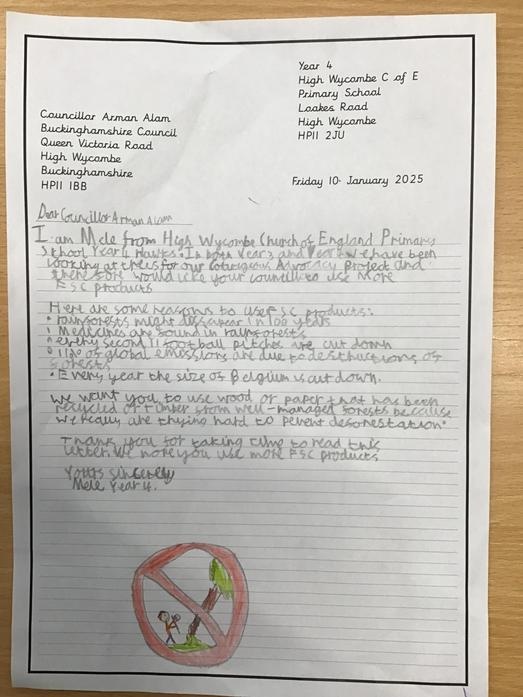 Year 4
High Wycombe C of E
Primary School
Loakes Road
High Wycombe
HP11 2JU
Councillor Arman Alam
Buckinghamshire Council
Queen Victoria Road
High Wycombe
Buckinghamshire
HP11 1BB
Friday 10 January 2025
Dear Councillor Arman Alam
I am Mele from High Wycombe Church of England Primary
School Year 4 Hawks. In both Year 3 and Year 4 we have been
looking at this for our Courageous Advocacy Project and
therefore would like your council to use More
FSC products
Here are some reasons to use FSC products:
• rainforests might dissapear in 100 years
• Medicines are found in rainforests
• every second 11 football pitches are cut down
• 11% of global emissions are due to destructions of
forests
• Every year the size of Belgium is cut down.
We want you to use wood or paper that has been
recycled or timber from well-managed forests because
we really are trying hard to pevent desforestation.
Thank you for taking time to read this
letter. We hope you use more FSC products
Yours sincerely
Mele Year 4.